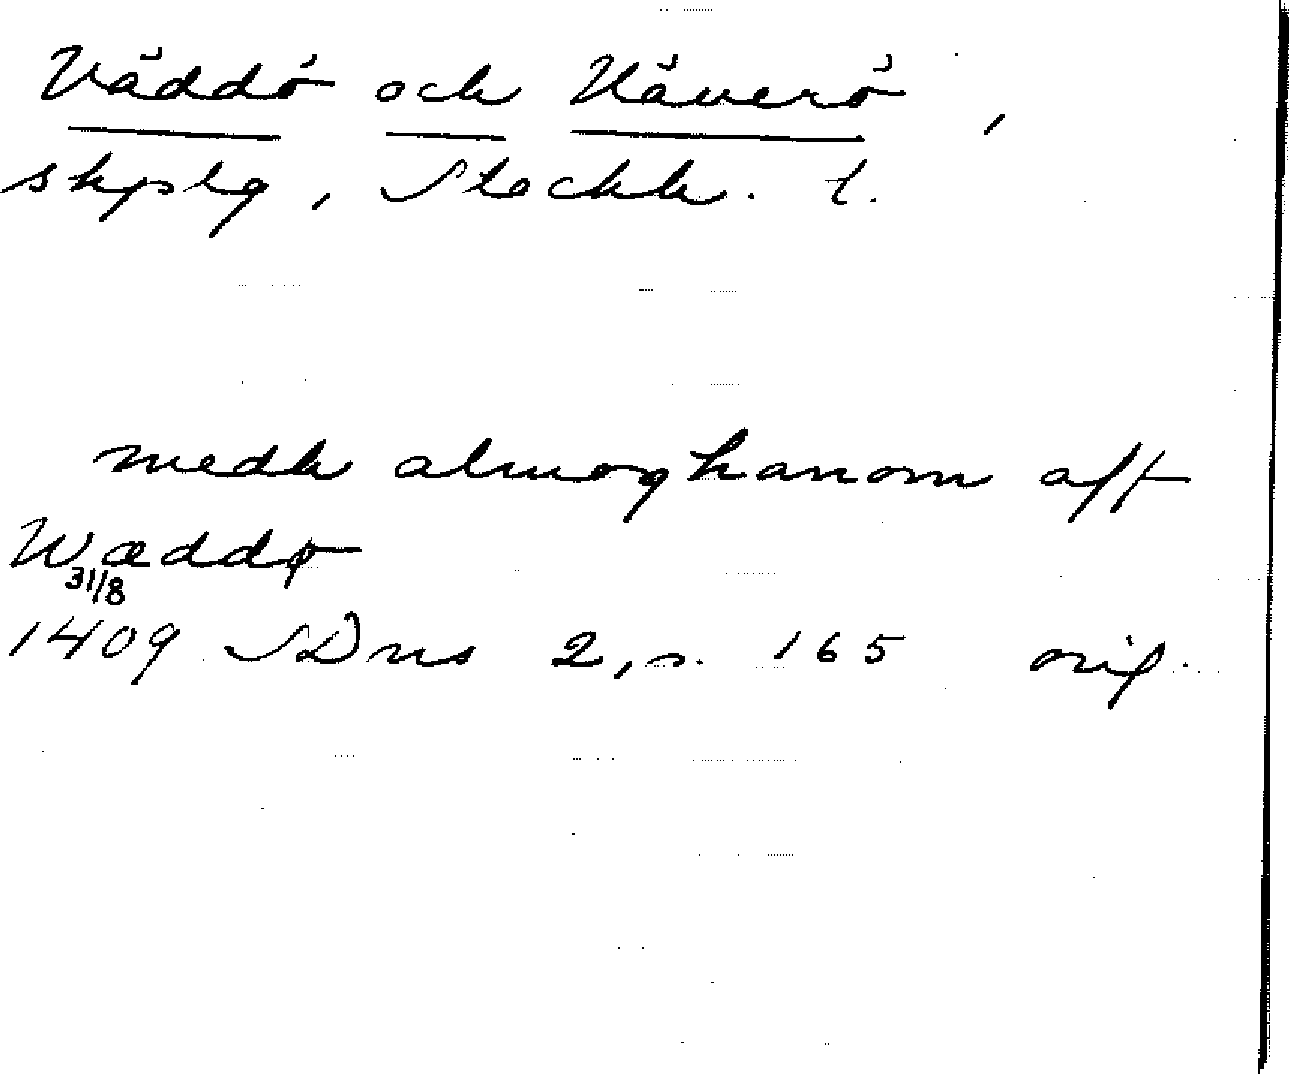 Väddö och Häverö,
skplg, Stockh. l.
medh almoghanom aff
Wæddø
31/8
1409 SDns 2, s. 165 orig.